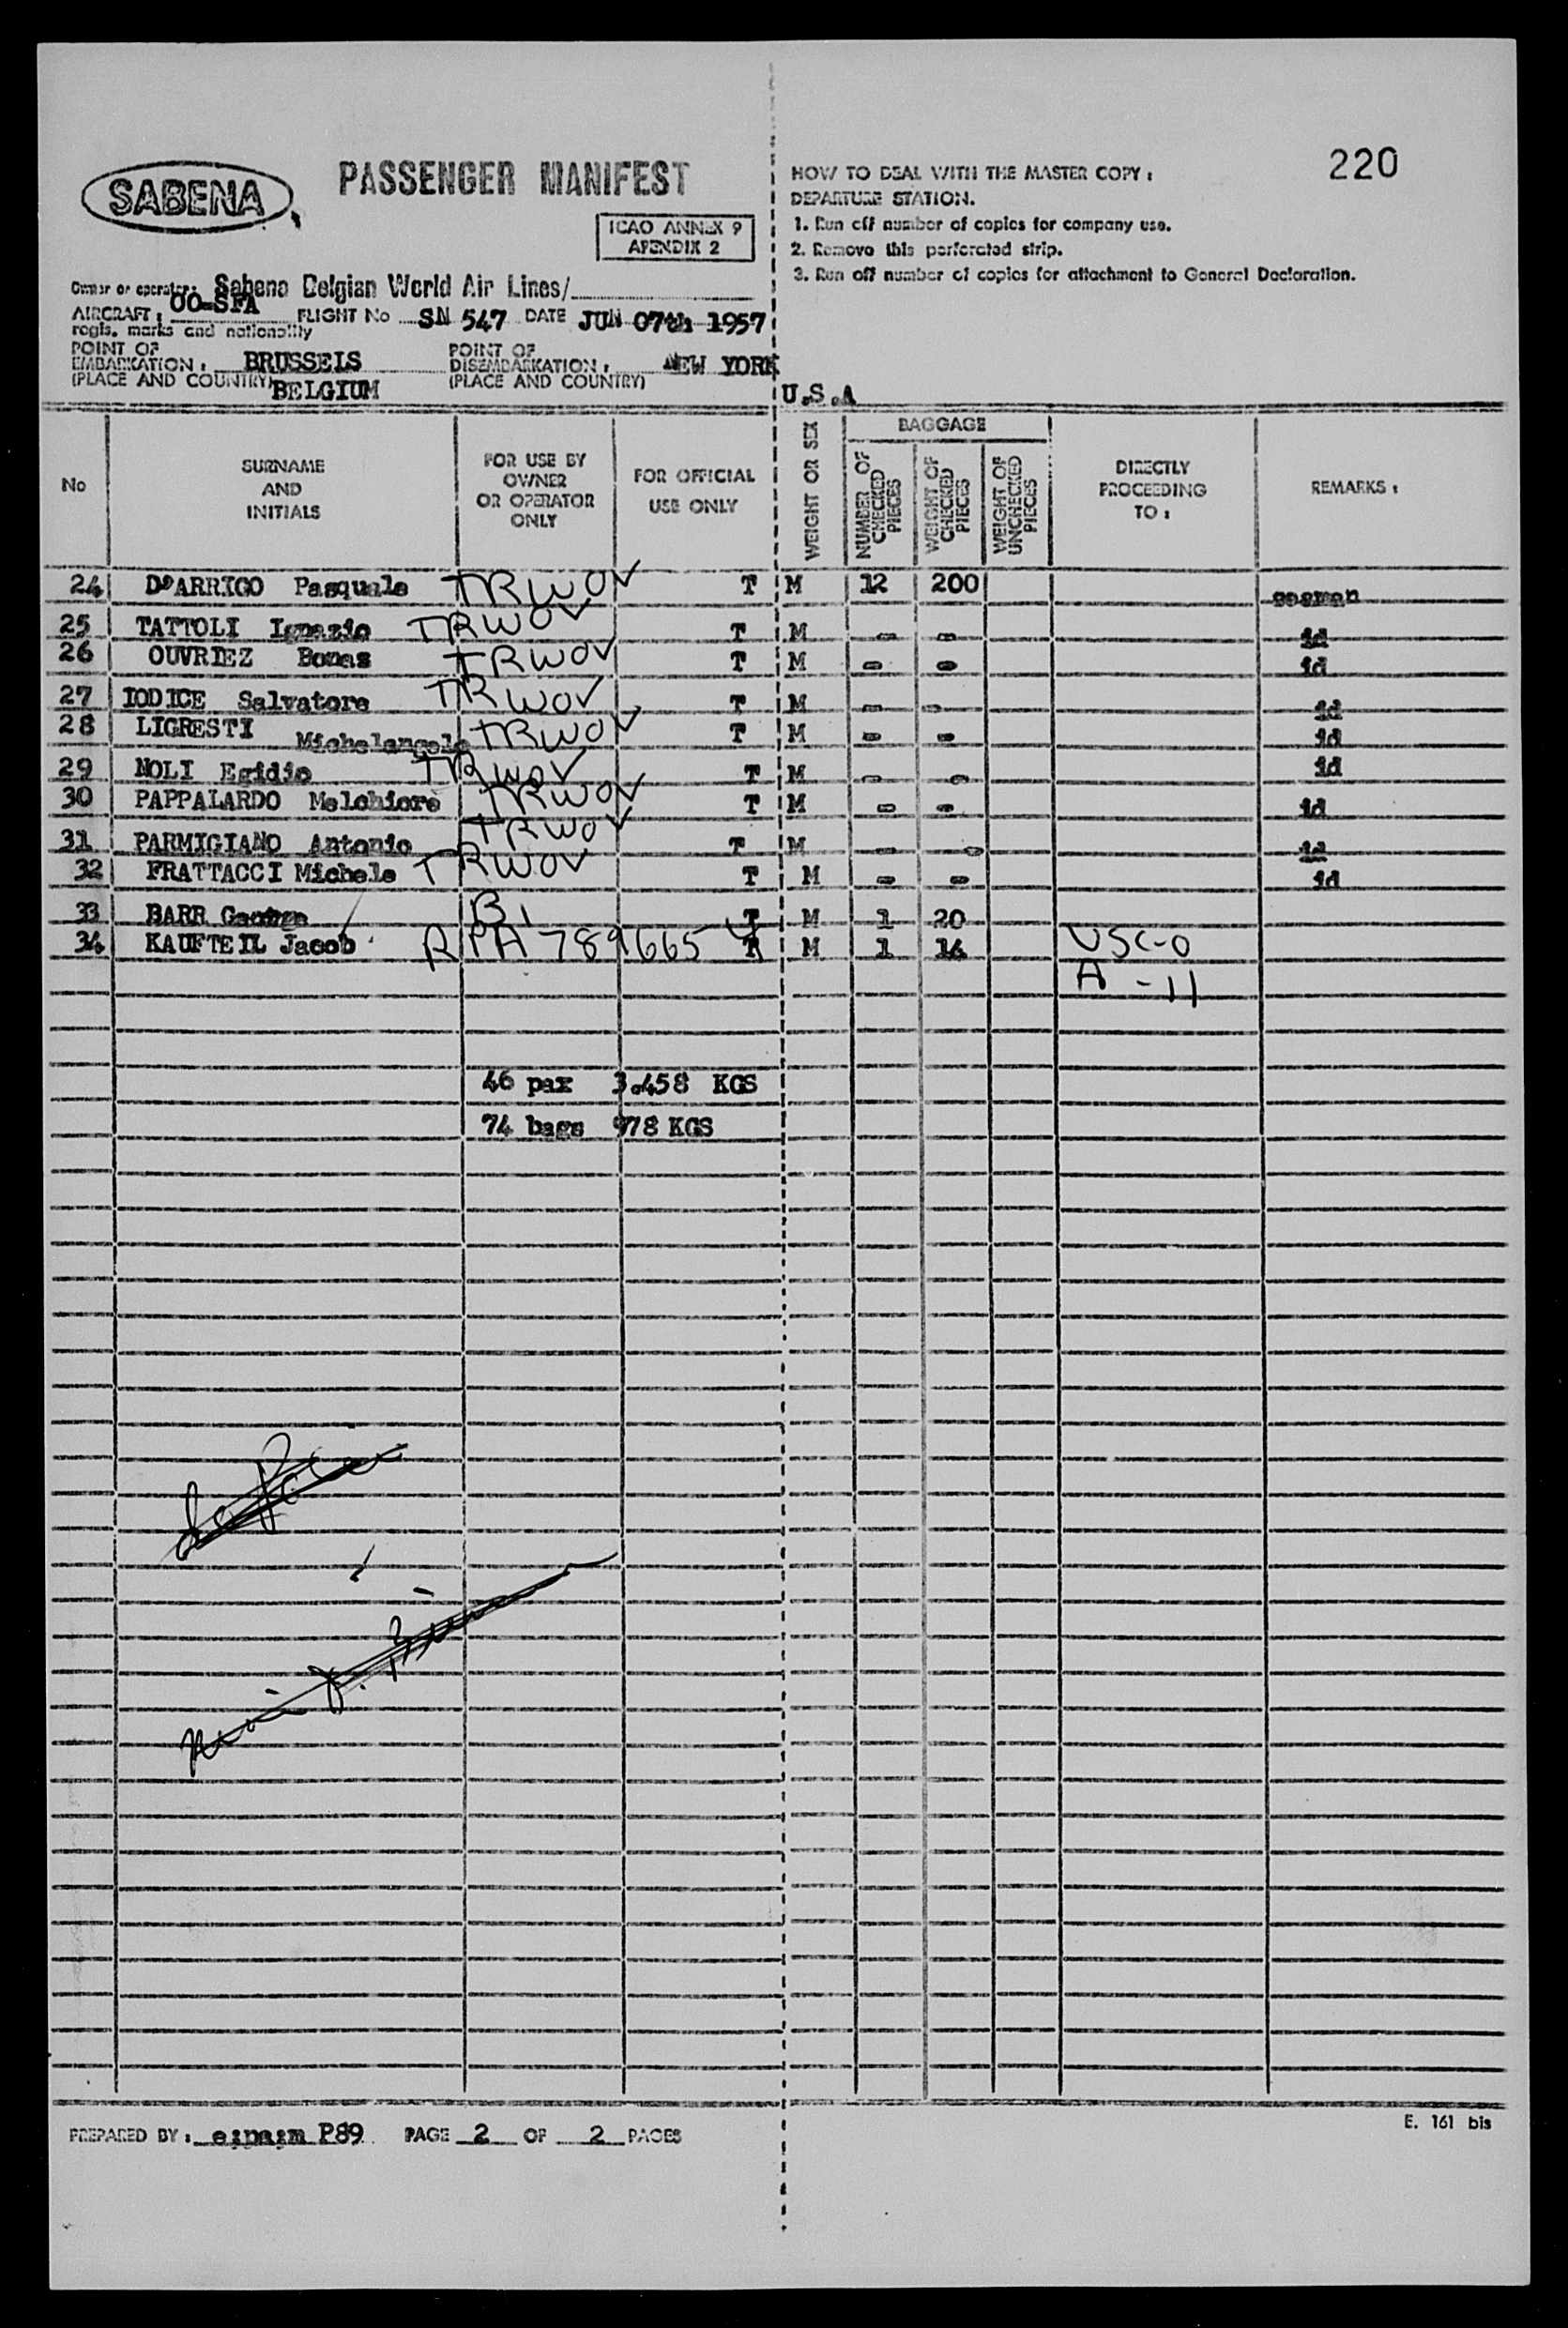 220
SABENA
PASSENGER MANIFEST
ICAO ANNEX 9
APENDIX 2
HOW TO DEAL WITH THE MASTER COPY :
DEPARTURE STATION.
1. Run off number of copies for company use.
2. Remove this perforated strip.
3. Run off number of copies for attachment to General Declaration.
Owner or operator: Sabena Belgian World Air Lines/
AIRCRAFT : OO-SFA FLIGHT No SN 547 DATE JUN 07th 1957
regis. marks and nationality
POINT OF EMBARKATION : BRUSSELS
(PLACE AND COUNTRY) BELGIUM
POINT OF DISEMBARKATION : NEW YORK
(PLACE AND COUNTRY) U.S.A
No
SURNAME AND INITIALS
FOR USE BY OWNER OR OPERATOR ONLY
FOR OFFICIAL USE ONLY
WEIGHT OR SEX
BAGGAGE
NUMBER OF CHECKED PIECES
WEIGHT OF CHECKED PIECES
WEIGHT OF UNCHECKED PIECES
DIRECTLY PROCEEDING TO :
REMARKS :
24 D'ARRIGO Pasquale TRWOV T M 12 200 seaman
25 TATTOLI Ignazio TRWOV T M - - id
26 OUVRIEZ Bonas TRWOV T M - - id
27 IODICE Salvatore TRWOV T M - - id
28 LIGRESTI Michelangelo TRWOV T M - - id
29 NOLI Egidio TRWOV T M - - id
30 PAPPALARDO Melchiore TRWOV T M - - id
31 PARMIGIANO Antonio TRWOV T M - - id
32 FRATTACCI Michele TRWOV T M - - id
33 BARR George B1 T M 1 20
34 KAUFTEIL Jacob RPA 789665 M 1 14 USC-0
A -11
46 pax 3.458 KGS
74 bags 978 KGS
PREPARED BY : P89 PAGE 2 OF 2 PAGES
E. 161 bis